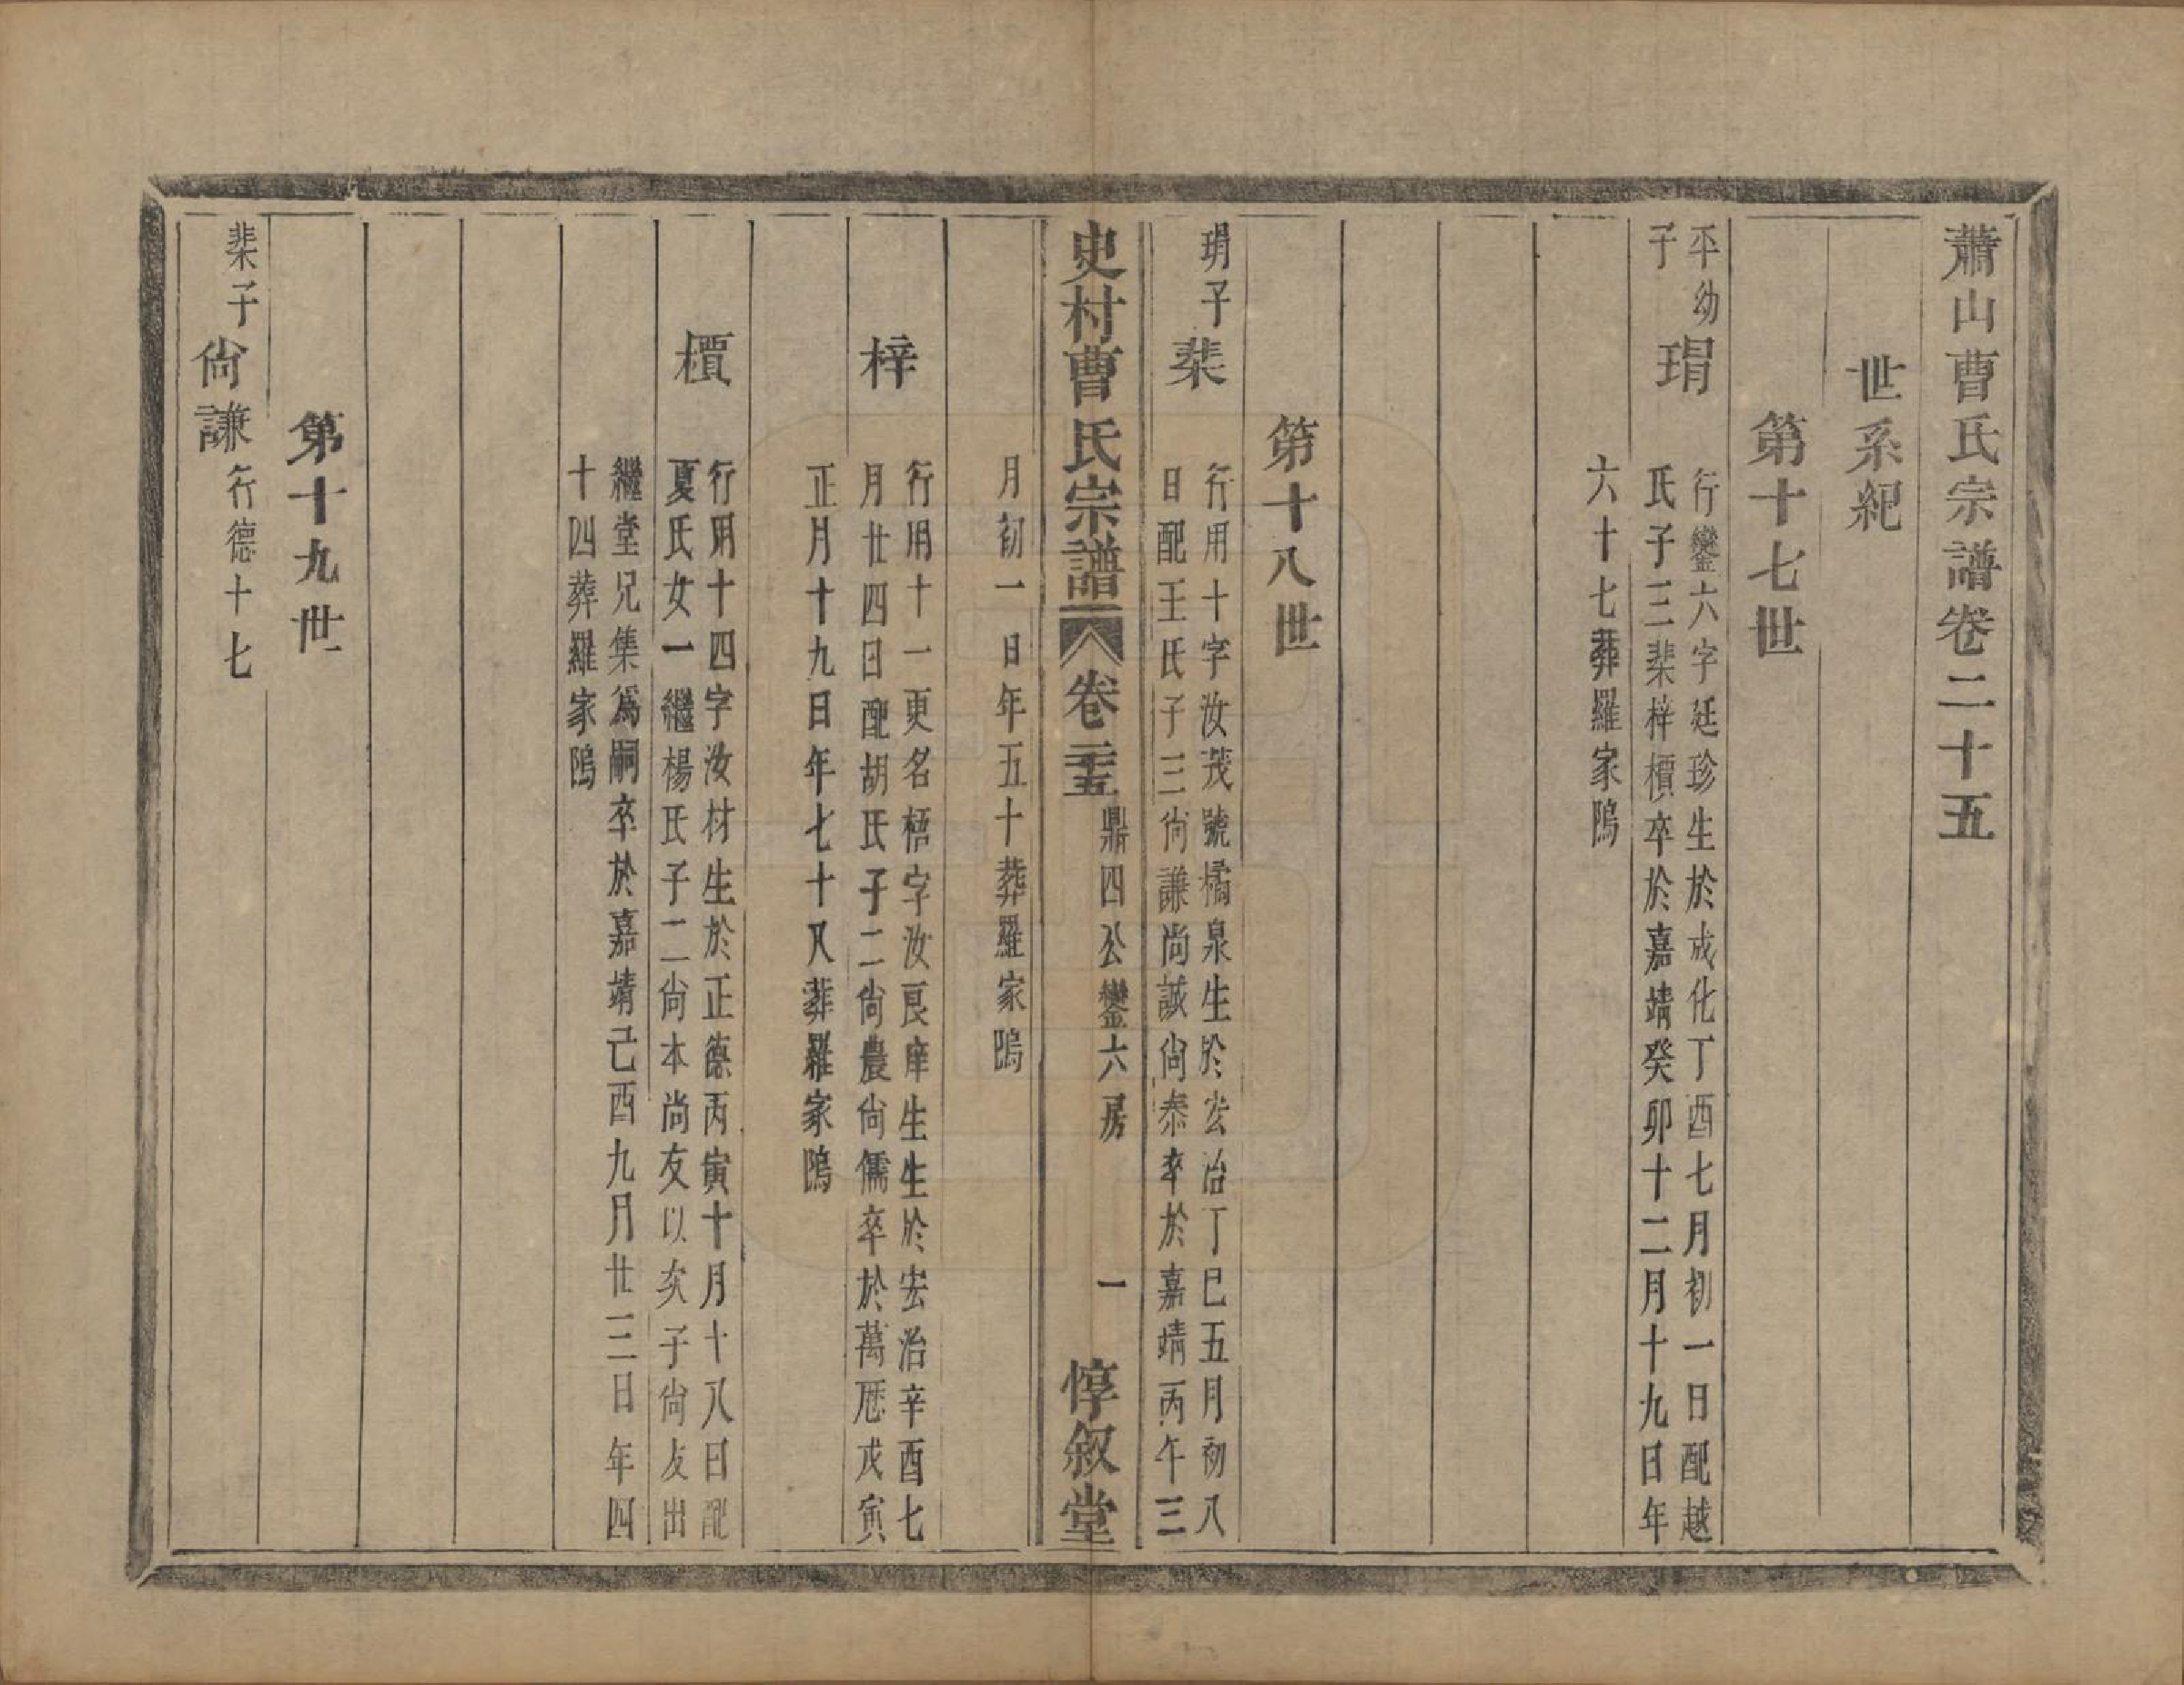 蕭山曹氏宗譜卷二十五
世系紀
第十七世
平幼子
瑁
行鑾六字廷珍生於成化丁酉七月初一日配越
氏子三棐梓檟卒於嘉靖癸卯十二月十九日年
六十七葬羅家隖
第十八世
瑁子
棐
行用十字汝茂號橘泉生於宏治丁巳五月初八
日配王氏子三尙謙尚誠尙泰卒於嘉靖丙午三
史村曹氏宗譜
卷二十五
鼎四公鑾六房
一
惇敘堂
月初一日年五十葬羅家隖
梓
行用十一更名梧字汝良庠生生於宏治辛酉七
月廿四日配胡氏子二尙農尙儒卒於萬厯戊寅
正月十九日年七十八葬羅家隖
檟
行用十四字汝材生於正德丙寅十月十八日配
夏氏女一繼楊氏子二尙本尚友以次子尙友出
繼堂兄集爲嗣卒於嘉靖己酉九月廿三日年四
十四葬羅家隖
第十九世
棐子
尙謙
行德十七